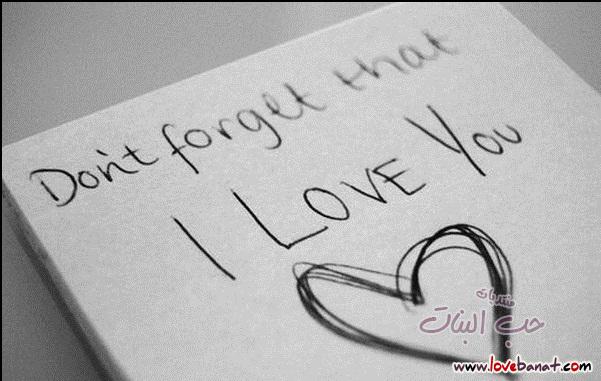 Don't forget that
I LOVE You
منتديات
حب البنات
www.lovebanat.com